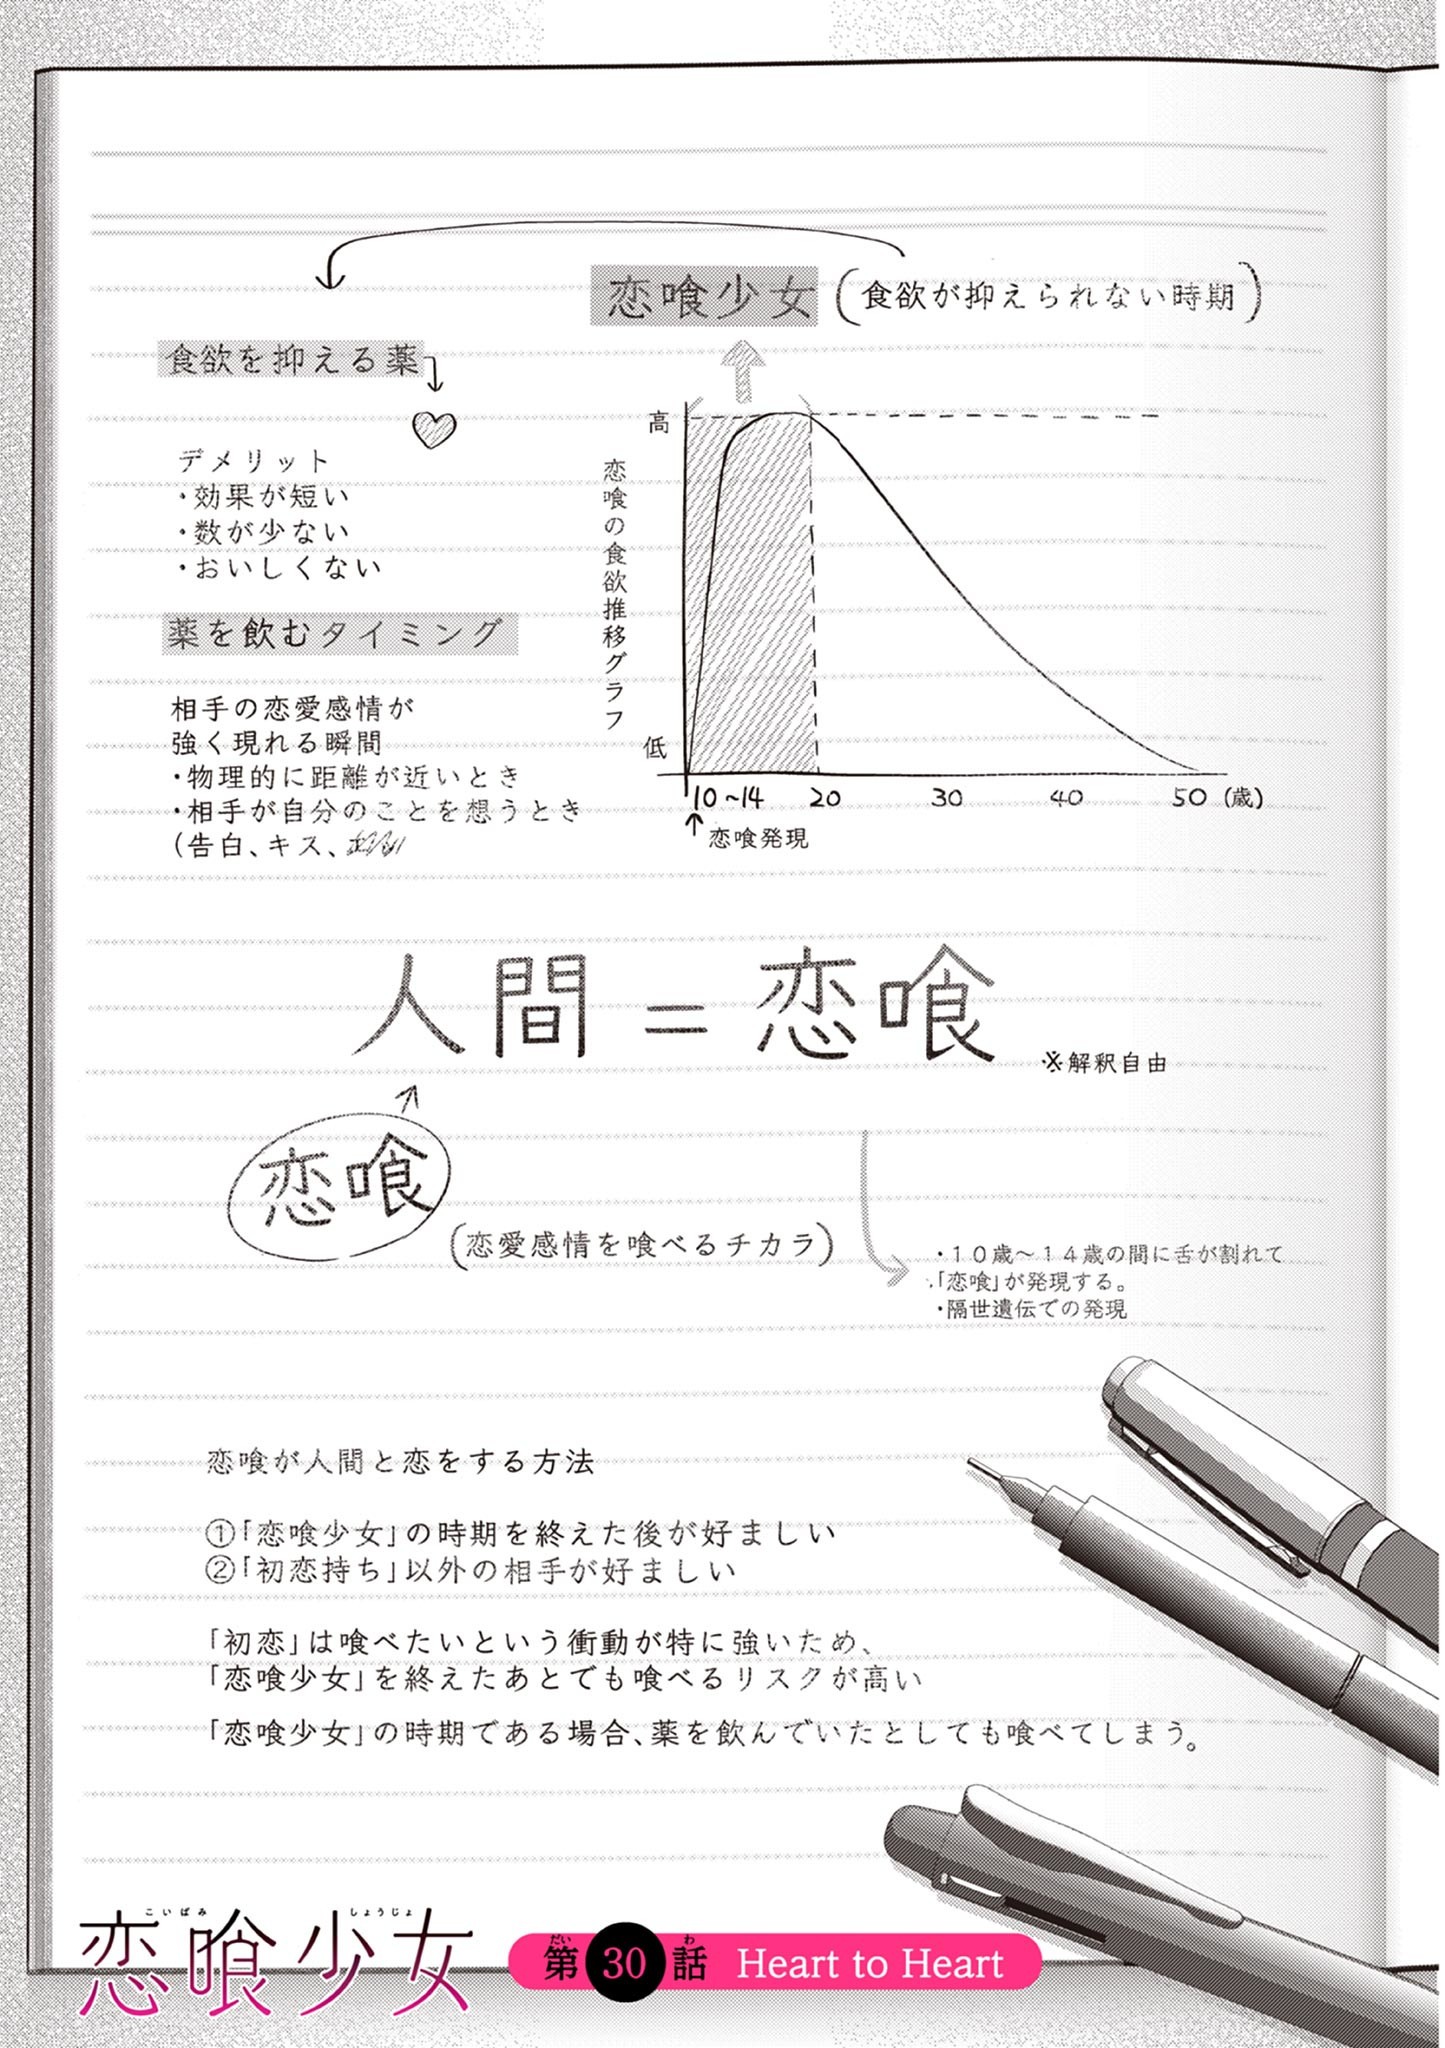 恋喰少女（食欲が抑えられない時期）
食欲を抑える薬
デメリット
・効果が短い
・数が少ない
・おいしくない
薬を飲むタイミング
相手の恋愛感情が
強く現れる瞬間
・物理的に距離が近いとき
・相手が自分のことを想うとき
（告白、キス、
恋喰の食欲推移グラフ
高
低
10～14 20 30 40 50（歳）
恋喰発現
人間＝恋喰
※解釈自由
恋喰
（恋愛感情を喰べるチカラ）
・１０歳～１４歳の間に舌が割れて
「恋喰」が発現する。
・隔世遺伝での発現
恋喰が人間と恋をする方法
①「恋喰少女」の時期を終えた後が好ましい
②「初恋持ち」以外の相手が好ましい
「初恋」は喰べたいという衝動が特に強いため、
「恋喰少女」を終えたあとでも喰べるリスクが高い
「恋喰少女」の時期である場合、薬を飲んでいたとしても喰べてしまう。
こいばみ しょうじょ
恋喰少女
だい わ
第30話 Heart to Heart